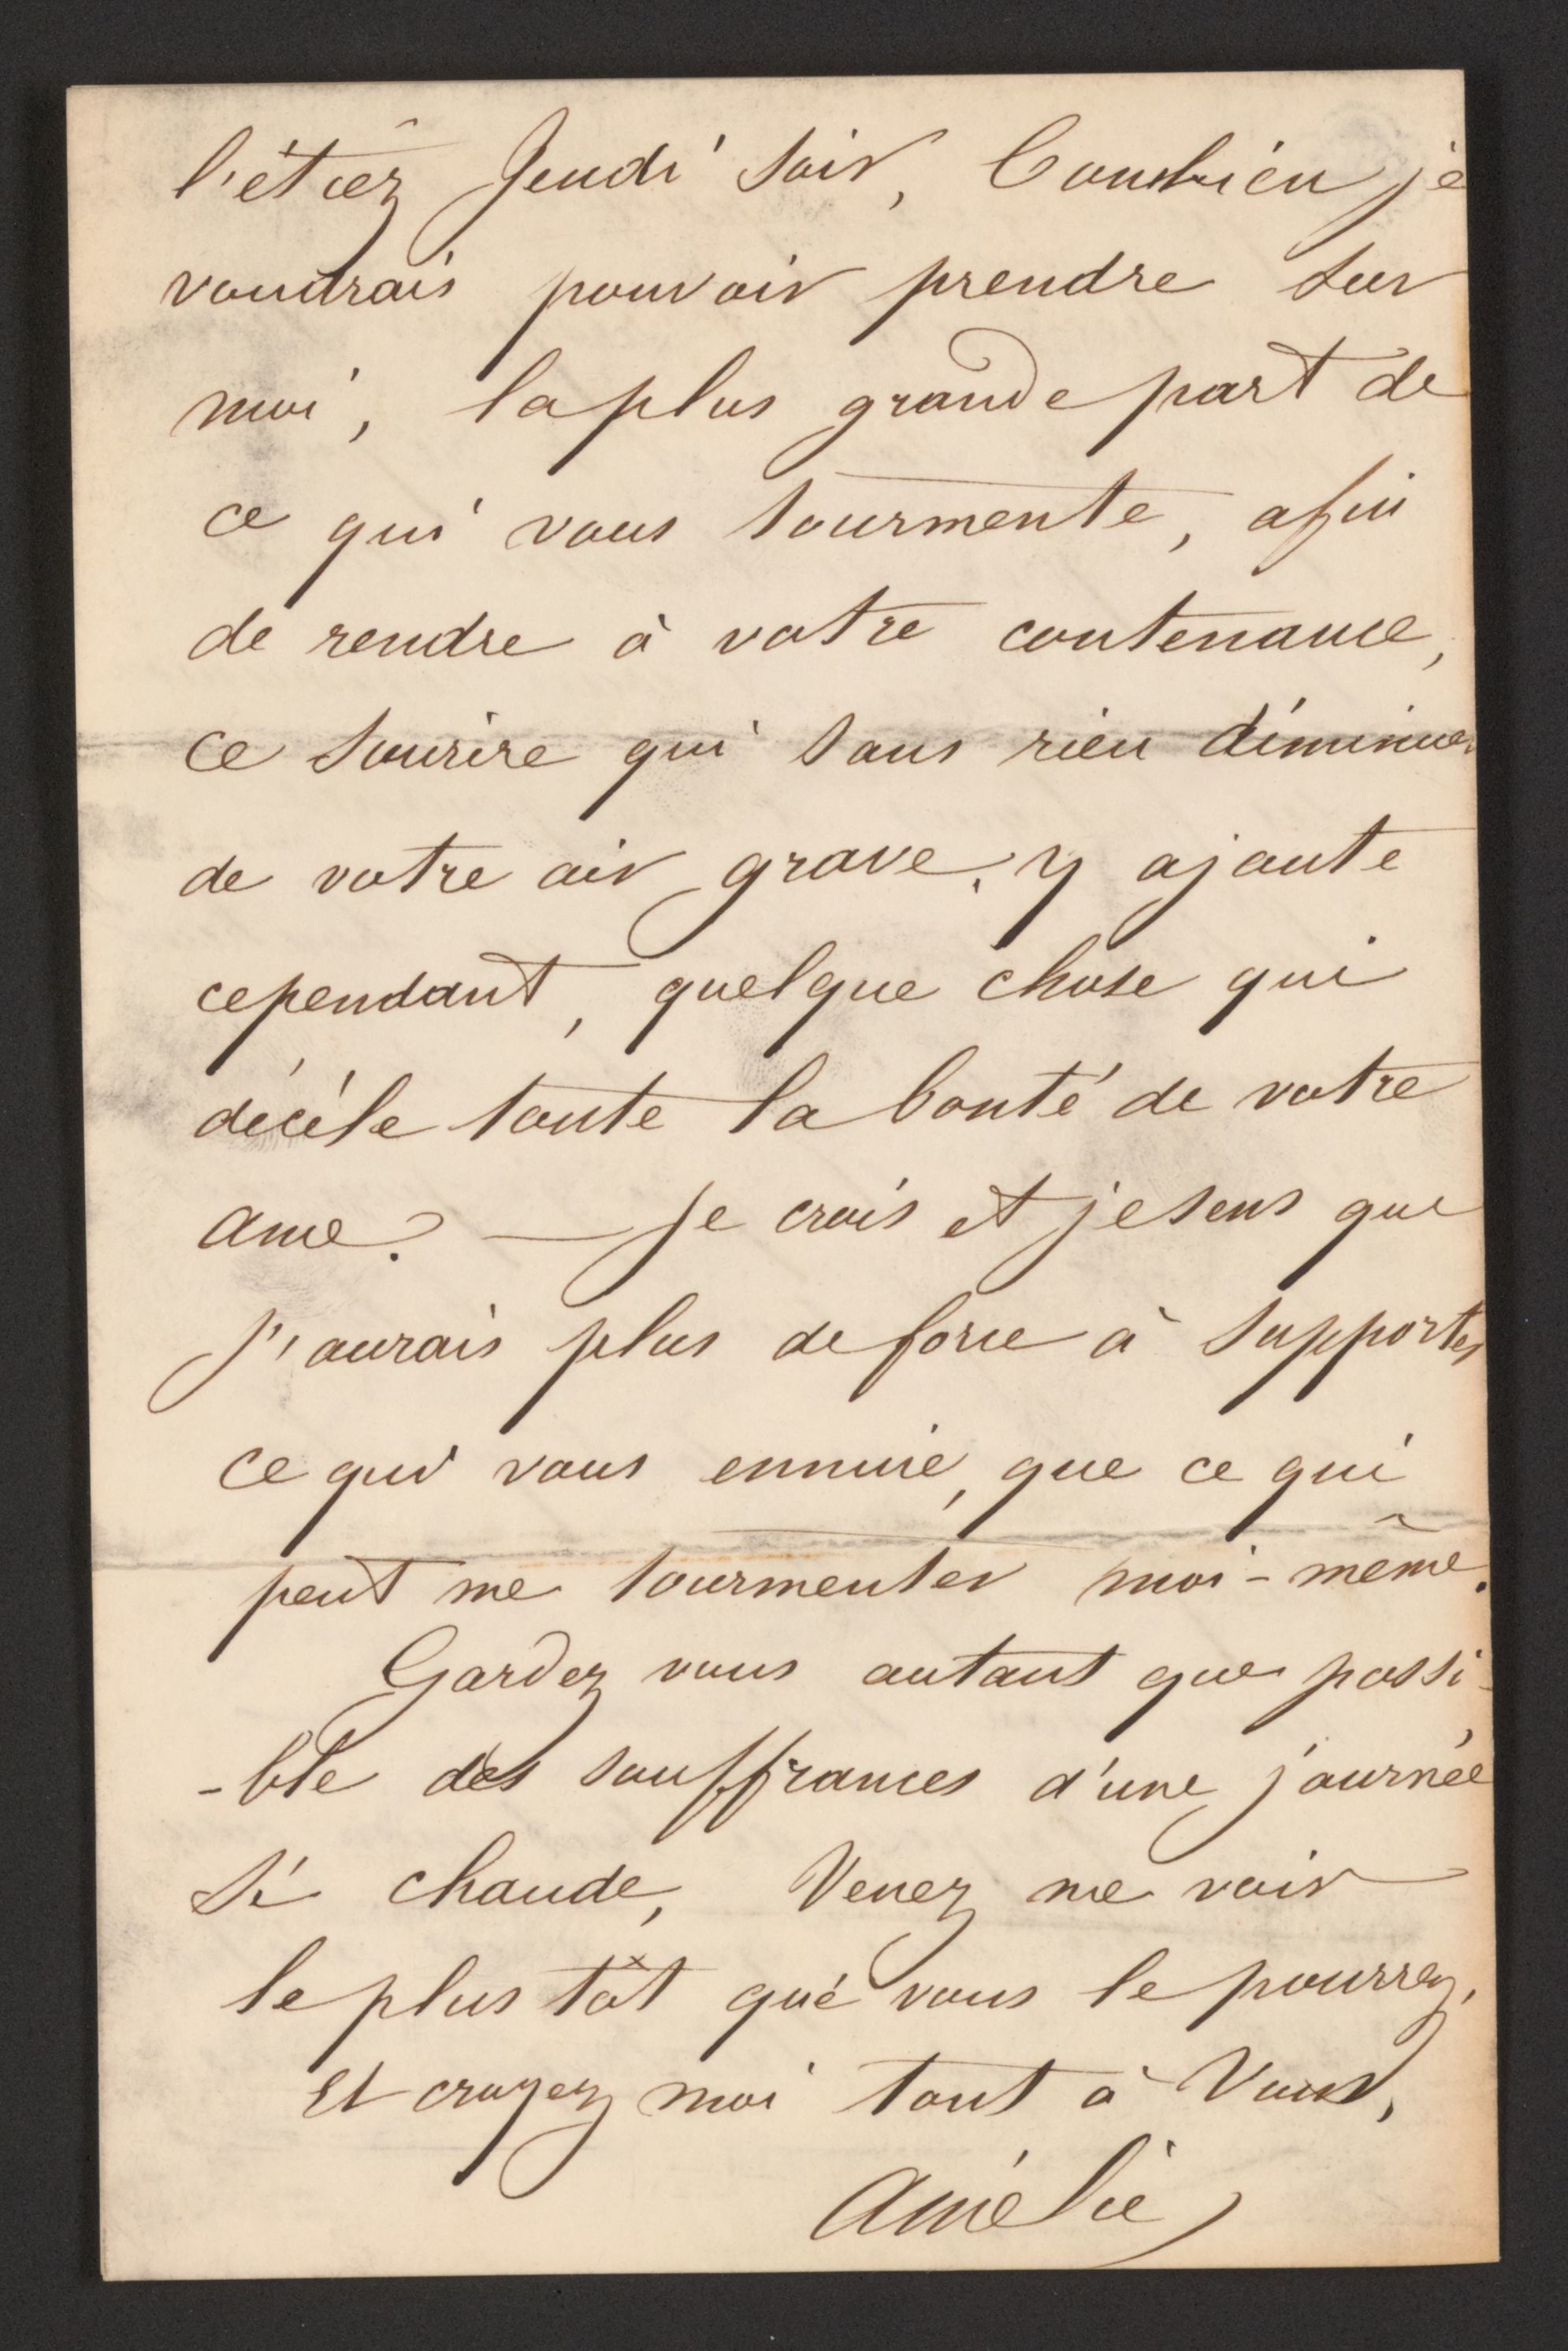 l'étiez Jeudi soir, Combien je
voudrais pouvoir prendre sur
moi, la plus grande part de
ce qui vous tourmente, afin
de rendre à votre contenance,
ce sourire qui sans rien diminuer
de votre air grave, y ajoute
cependant, quelque chose qui
décéle toute la bonté de votre
ame? — Je crois et je sens que
j'aurais plus de force à supporter
ce qui vous ennuie, que ce qui
peut me tourmenter moi-même.
Gardez vous autant que possi-
-ble des souffrances d'une journée
si chaude, Venez me voir
le plus tôt que vous le pourrez,
Et croyez moi tout à Vous,
Amélie